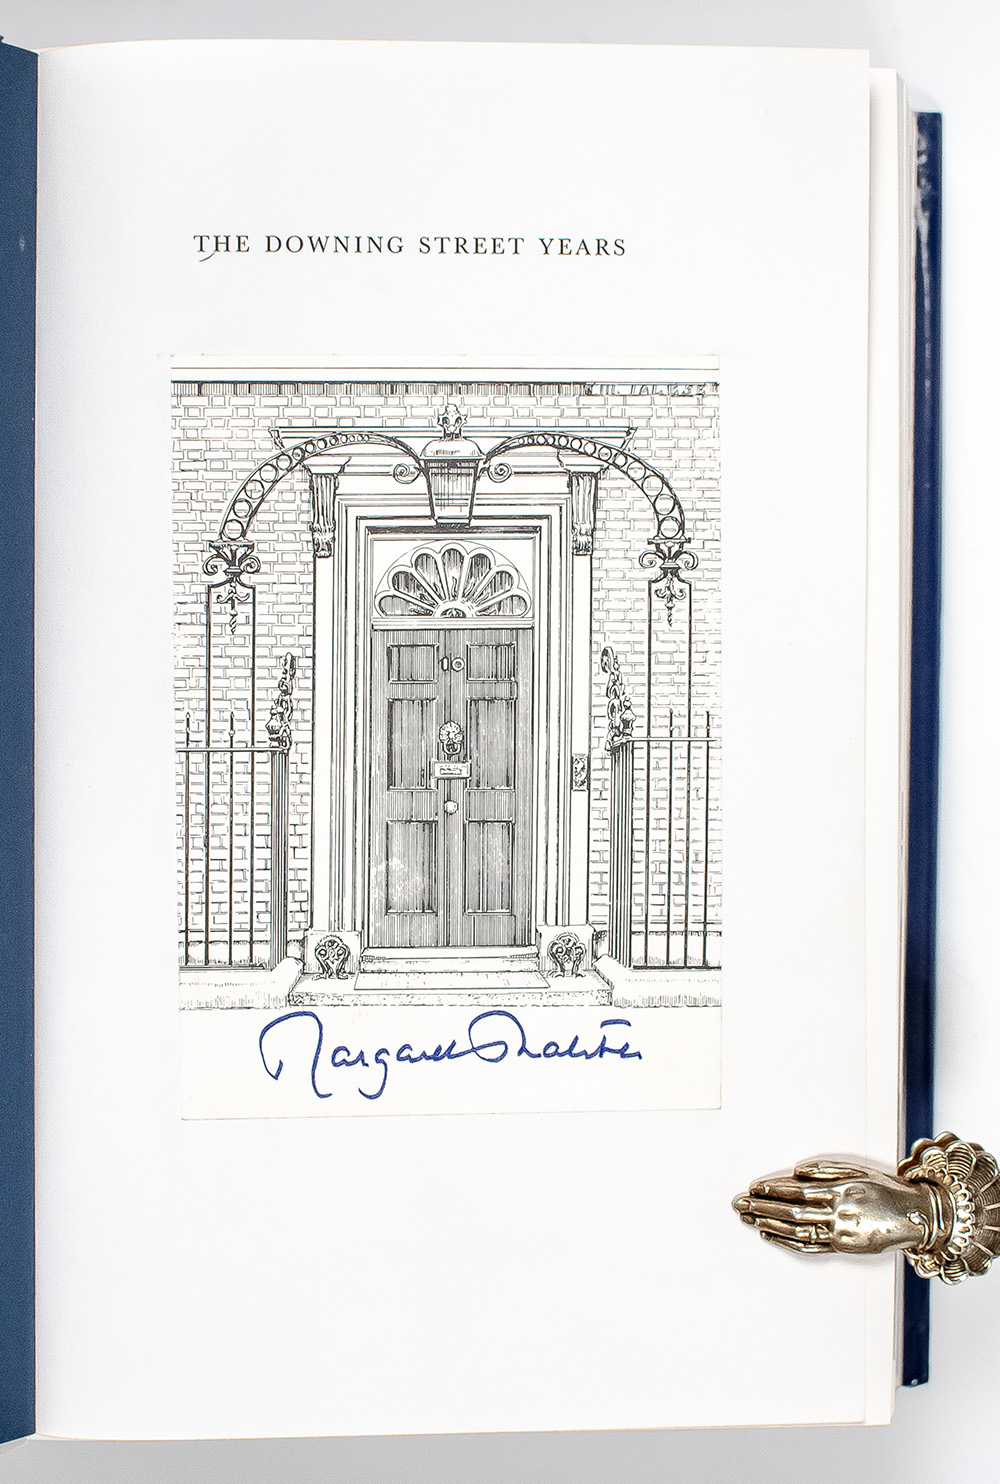 THE DOWNING STREET YEARS
Margaret Thatcher